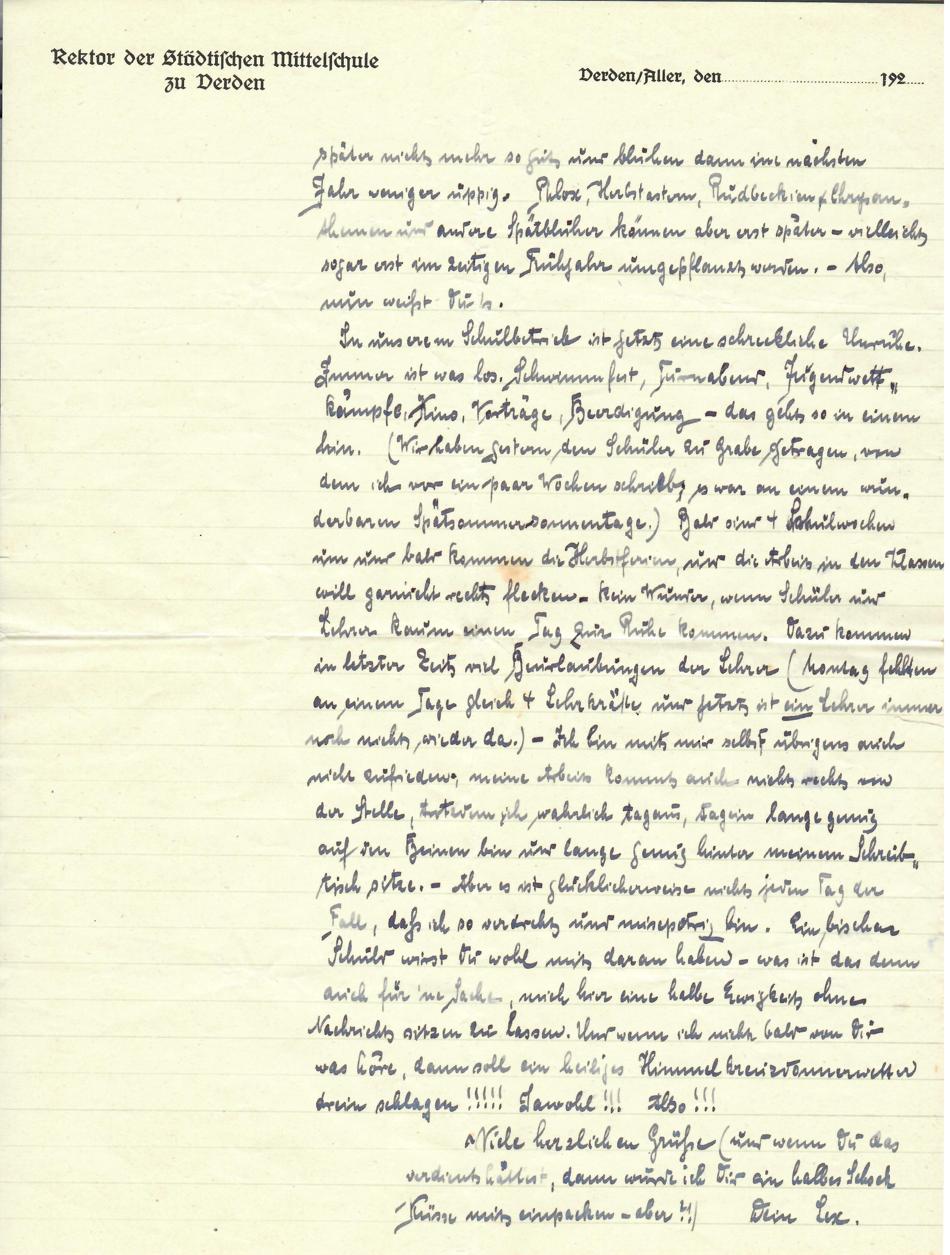 Rektor der Städtischen Mittelschule
zu Verden
Verden/Aller, den 192
später nicht mehr so gut und blühen dann im nächsten
Jahr weniger üppig. Phlox, Herbstastern, Rudbeckien, Chrysan-
themen und andere Spätblüher können aber erst später – vielleicht
sogar erst im zeitigen Frühjahr umgepflanzt werden. – Also,
nun weißt Du's.
In unserem Schulbetrieb ist jetzt eine schreckliche Unruhe.
Immer ist was los. Schwimmfest, Turnabend, Jugendwett-
kämpfe, Kino, Vorträge, Beerdigung – das geht so in einem
hin. (Wir haben gestern den Schüler zu Grabe getragen, von
dem ich vor ein paar Wochen schrieb, es war an einem wun-
derbaren Spätsommersonnentage.) Bald sind 4 Schulwochen
um und bald kommen die Herbstferien, und die Arbeit in den Klassen
will garnicht recht flecken – kein Wunder, wenn Schüler und
Lehrer kaum einen Tag zur Ruhe kommen. Dazu kommen
in letzter Zeit viel Beurlaubungen der Lehrer (Montag fehlten
an einem Tage gleich 4 Lehrkräfte und jetzt ist ein Lehrer immer
noch nicht wieder da.) – Ich bin mit mir selbst übrigens auch
nicht zufrieden, meine Arbeit kommt auch nicht recht von
der Stelle, trotzdem ich wahrlich tagaus, tagein lange genug
auf den Beinen bin und lange genug hinter meinem Schreib-
tisch sitze. – Aber es ist glücklicherweise nicht jeden Tag der
Fall, daß ich so verdreht und misepetrig bin. Ein bischen
Schuld wirst Du wohl mit daran haben – was ist das denn
auch für 'ne Sache, mich hier eine halbe Ewigkeit ohne
Nachricht sitzen zu lassen. Und wenn ich nicht bald von Dir
was höre, dann soll ein heiliges Himmelkreuzdonnerwetter
drein schlagen !!!!! Jawohl !!! Also !!!
Viele herzlichen Grüße (und wenn Du das
verdient hättest, dann würde ich Dir ein halbes Schock
Küsse mit einpacken – aber ?!) Dein Lex.